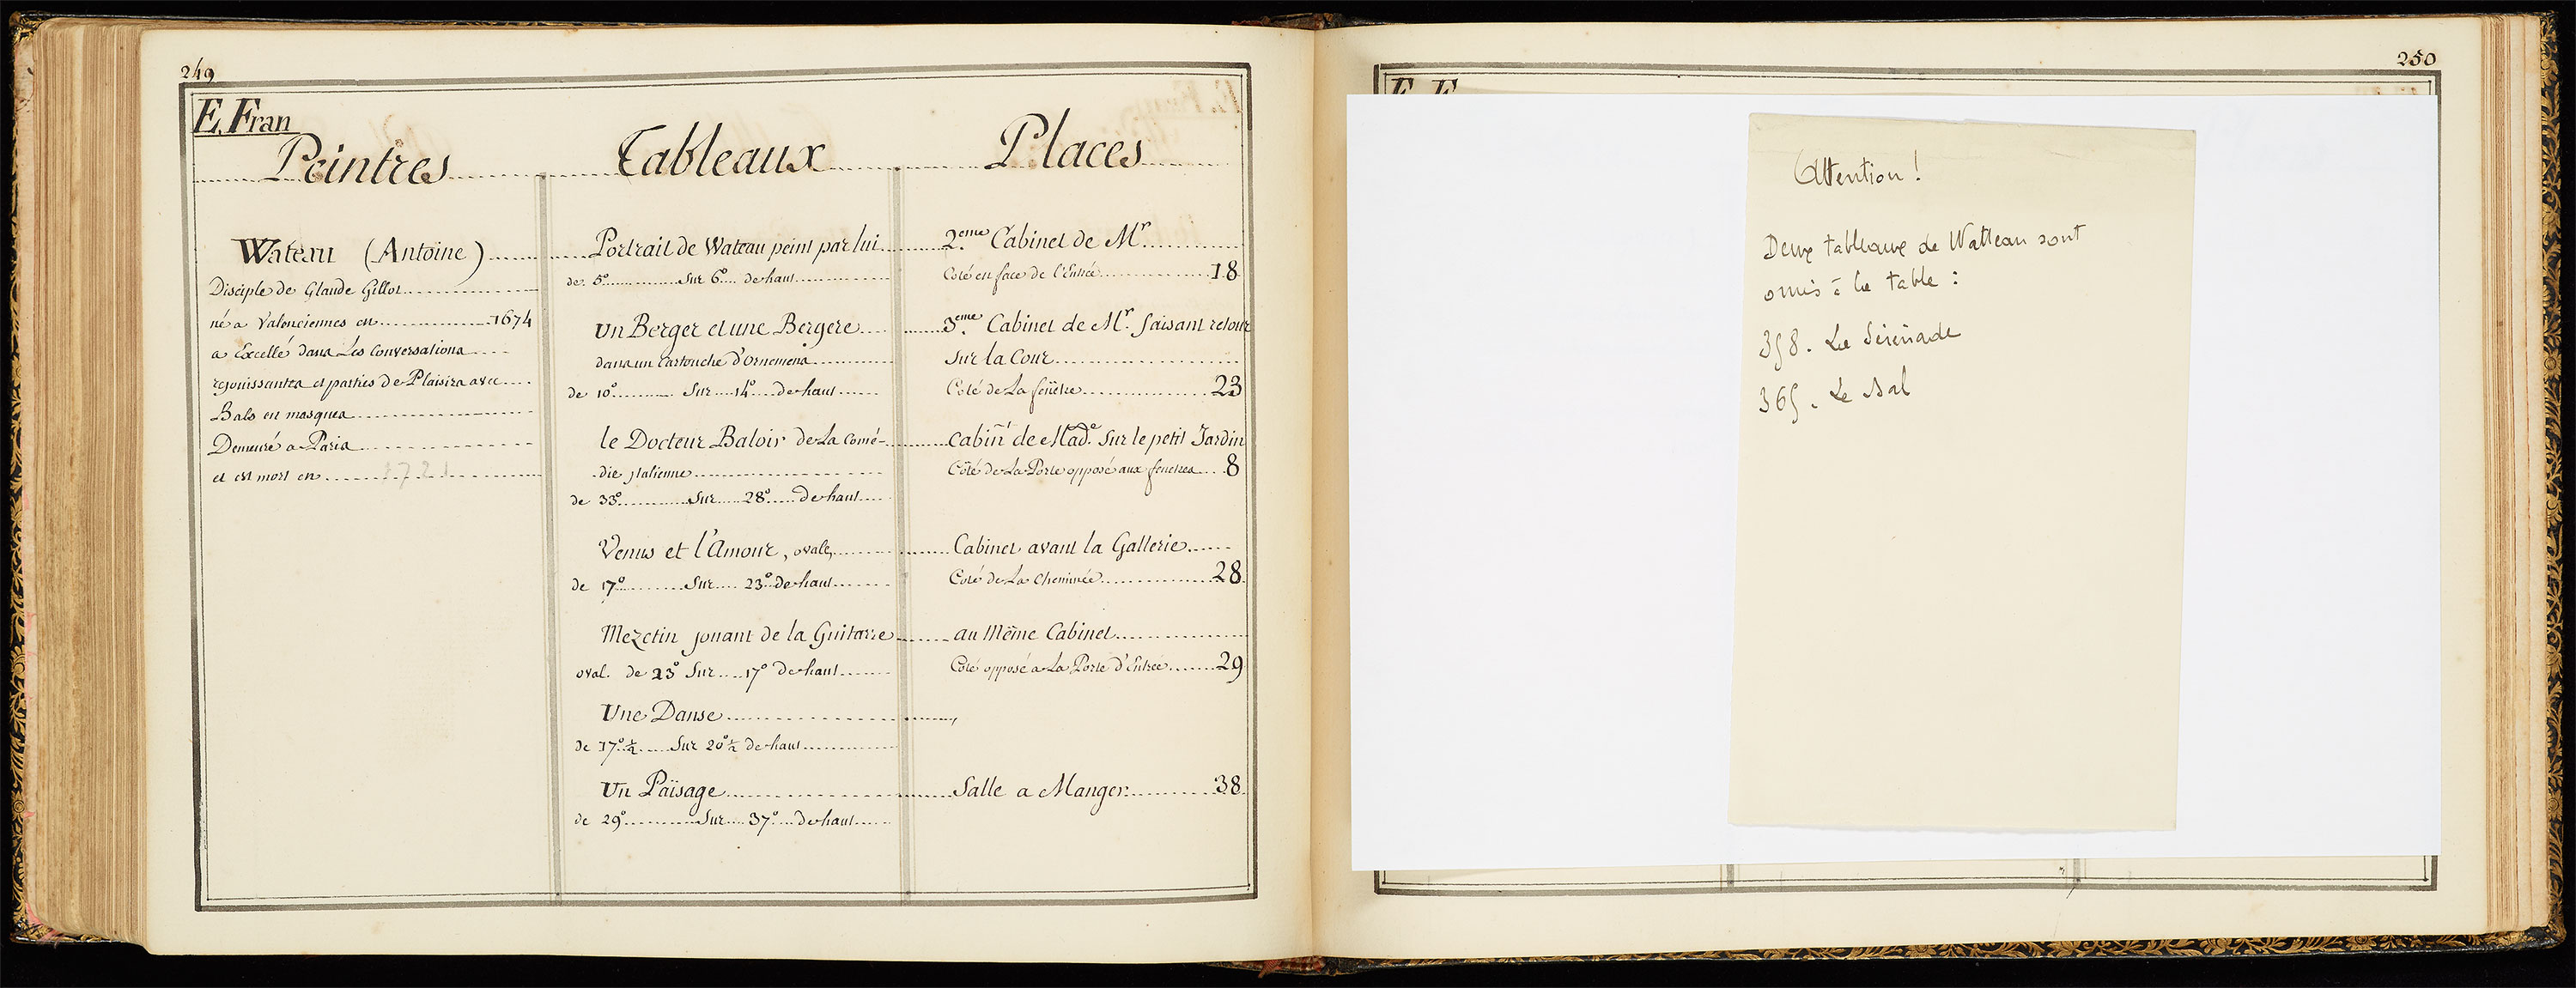 249
E. Fran
Peintres Tableaux Places
Wateau (Antoine)
Disciple de Glaude Gillot
né a Valenciennes en 1674
a Excellé dans Les Conversations
rejouissantes et parties de Plaisirs avec
Bals en masques
Demeuré a Paris
et est mort en 1721
Portrait de Wateau peint par lui
de 5° Sur 6° de haut
Un Berger et une Bergere
dans un Cartouche d'Ornemens
de 10° Sur 14° de haut
le Docteur Baloir de La Comé-
die jtalienne
de 33° Sur 28° de haut
Venus et l'Amour, ovale,
de 17° Sur 23° de haut
Mezetin jouant de la Guitarre
oval. de 23° Sur 17° de haut
Une Danse
de 17° ½ Sur 20° ½ de haut
Un Païsage
de 29° Sur 37° de haut
2.eme Cabinet de Mr
Coté en face de l'Entrée 18
3.eme Cabinet de Mr. faisant retour
Sur la Cour
Coté de La fenêtre 23
Cabint de Made. Sur le petit Jardin
Côté de La Porte opposé aux fenetres 8
Cabinet avant la Gallerie
Coté de La Cheminée 28
au Même Cabinet
Coté opposé a La Porte d'Entrée 29
Salle a Manger 38
250
Attention !
Deux tableaux de Watteau sont
omis à la table :
358. La Sérénade
365. Le Bal